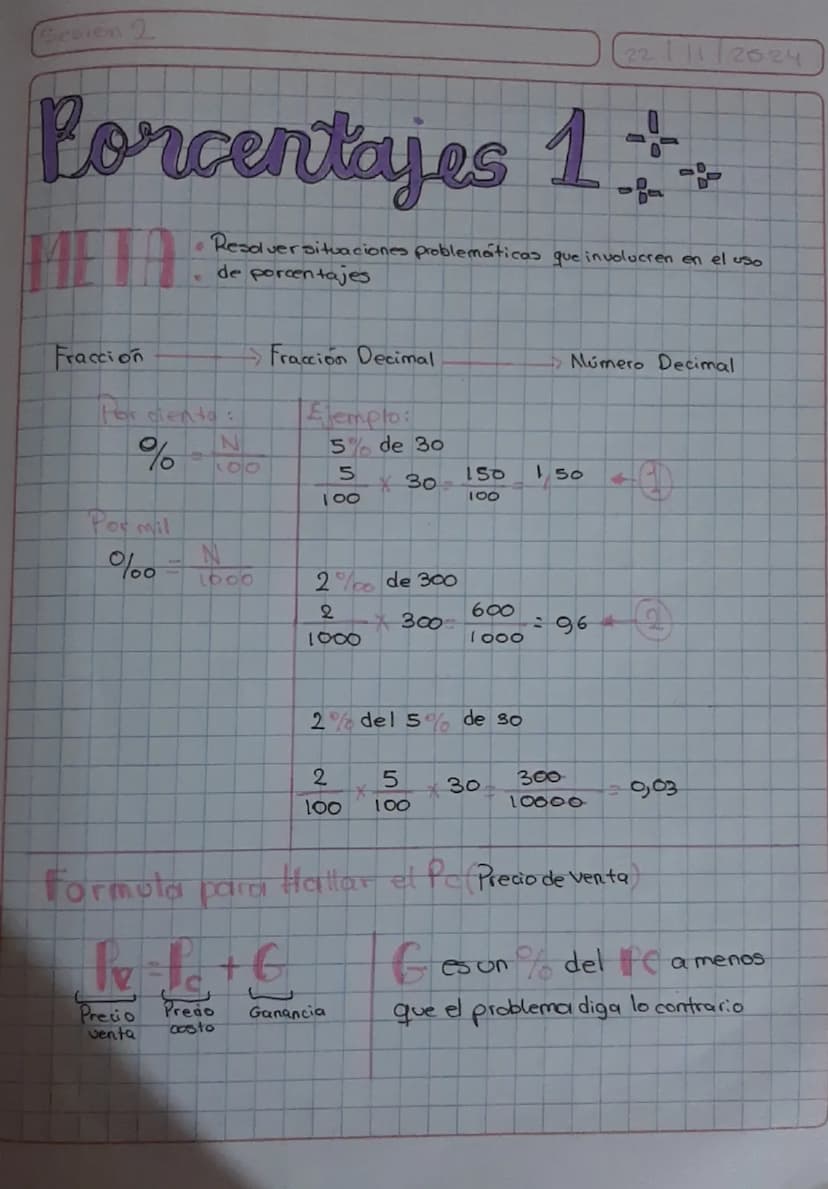 Sesión 2
22/11/2024
Porcentajes 1
META • Resolver situaciones problemáticas que involucren en el uso
• de porcentajes
Fracción → Fracción Decimal → Número Decimal
Por ciento:
% = N/100
Ejemplo:
5% de 30
5/100 × 30 = 150/100 = 1,50 ← 1
Por mil
‰ = N/1000
2‰ de 300
2/1000 × 300 = 600/1000 = 0,6 ← 2
2% del 5% de 30
2/100 × 5/100 × 30 = 300/10000 = 0,03
Formula para Hallar el Pc (Precio de venta)
Pv = Pc + G
Precio venta
Precio costo
Ganancia
G es un % del PC a menos
que el problema diga lo contrario